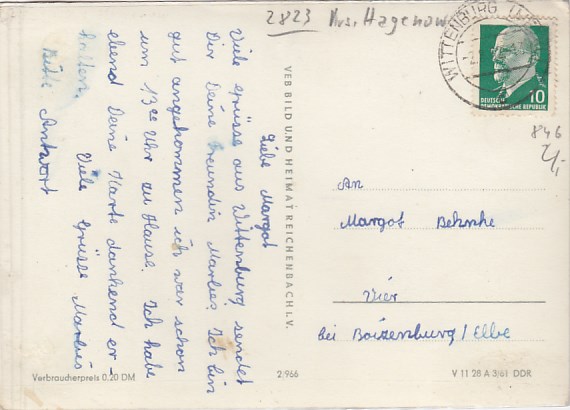 2823 Krs. Hagenow
WITTENBURG
DEUTSCHE
DEMOKRATISCHE REPUBLIK
10
846
2,-
Liebe Margot
Viele Grüsse aus Wittenburg sendet
Dir Deine Freundin Marlies. Ich bin
gut angekommen ich war schon
um 13°° Uhr zu Hause. Ich habe
ebend Deine Karte dankend er-
halten.
Viele Grüsse Marlies
Bitte Antwort
VEB BILD UND HEIMAT REICHENBACH I. V.
An
Margot Behnke
Vier
bei Boizenburg / Elbe
Verbraucherpreis 0,20 DM
2,966
V 11 28 A 3/61 DDR